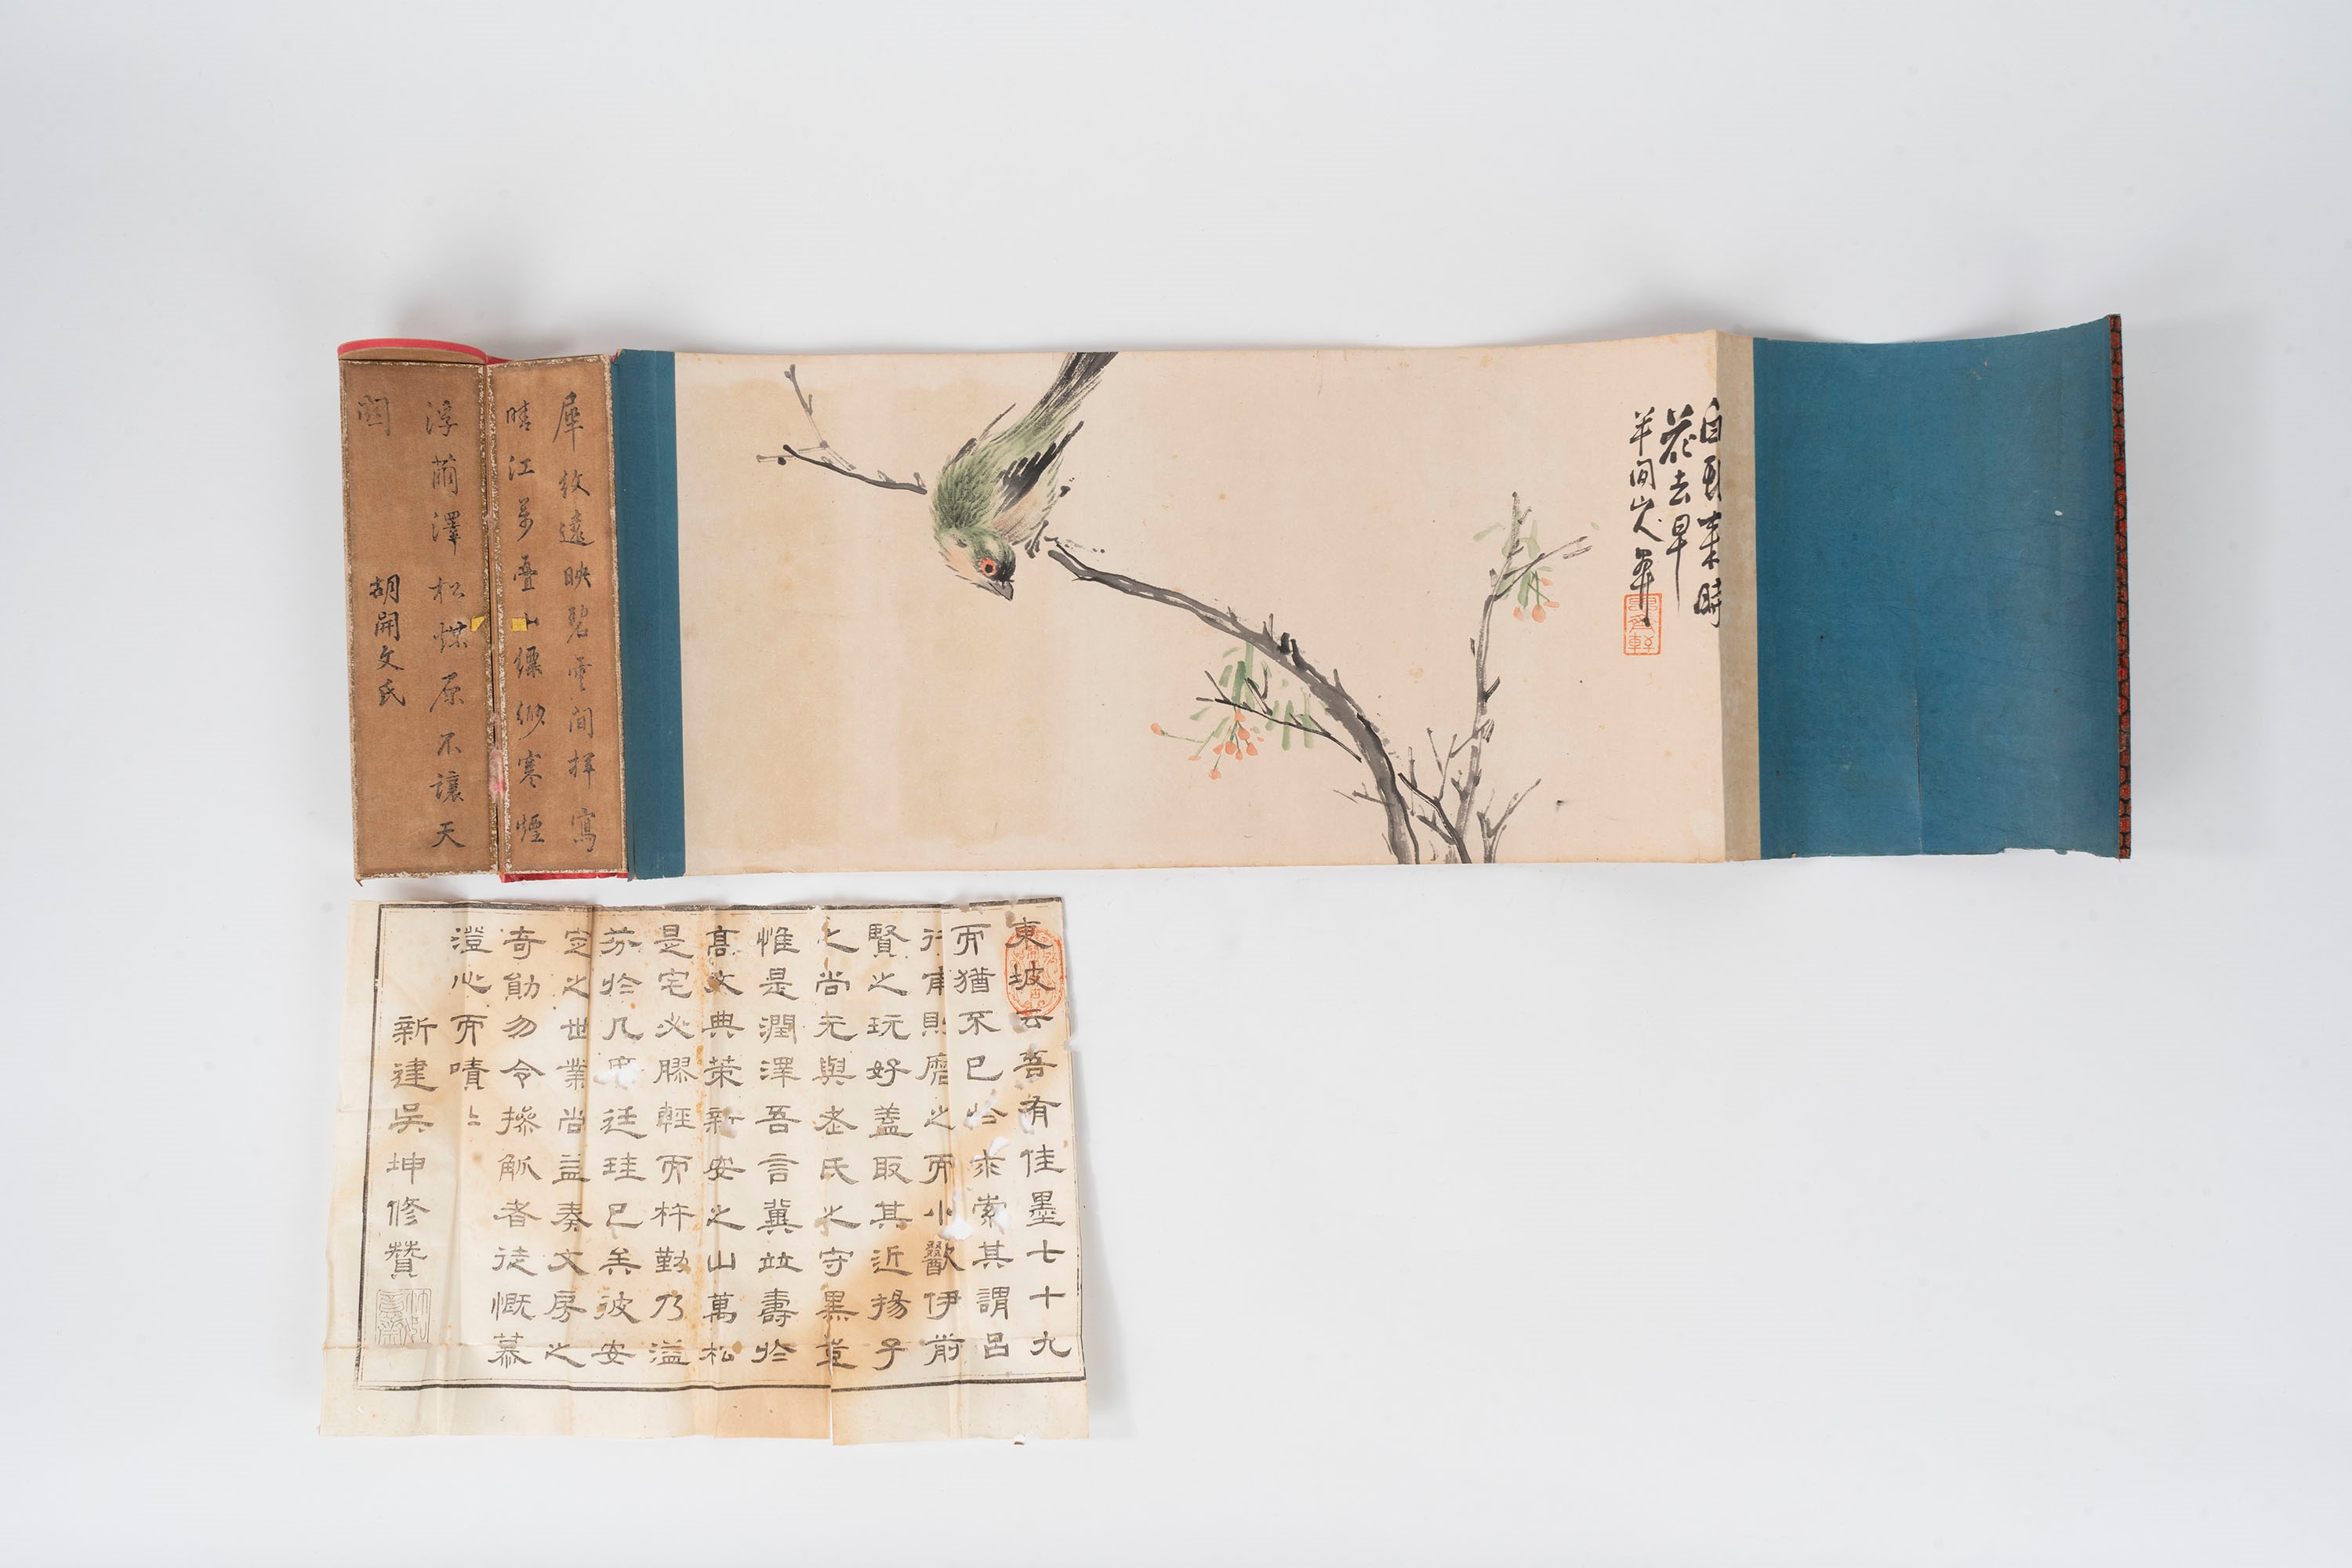 犀紋遠映碧雲間揮寫
晴江萬疊山縹緲寒煙
浮蘭澤松煤原不讓天
閣
胡開文氏
自我來時
花去早
半間山人
東坡云吾有佳墨七十九
而猶求索其謂呂
行甫則磨之而小歠伊前
賢之玩好蓋取其近揚子
之尚元與老氏之守黑豈
惟是潤澤吾言冀竝壽於
高文典策新安之山萬松
是宅必膠輕而杵勤乃溢
芬於几席廷珪已矣彼安
定之世業尚益奏文房之
奇勛勿令摻觚者徒慨慕
澄心而嘖〻
新建吳坤修贊